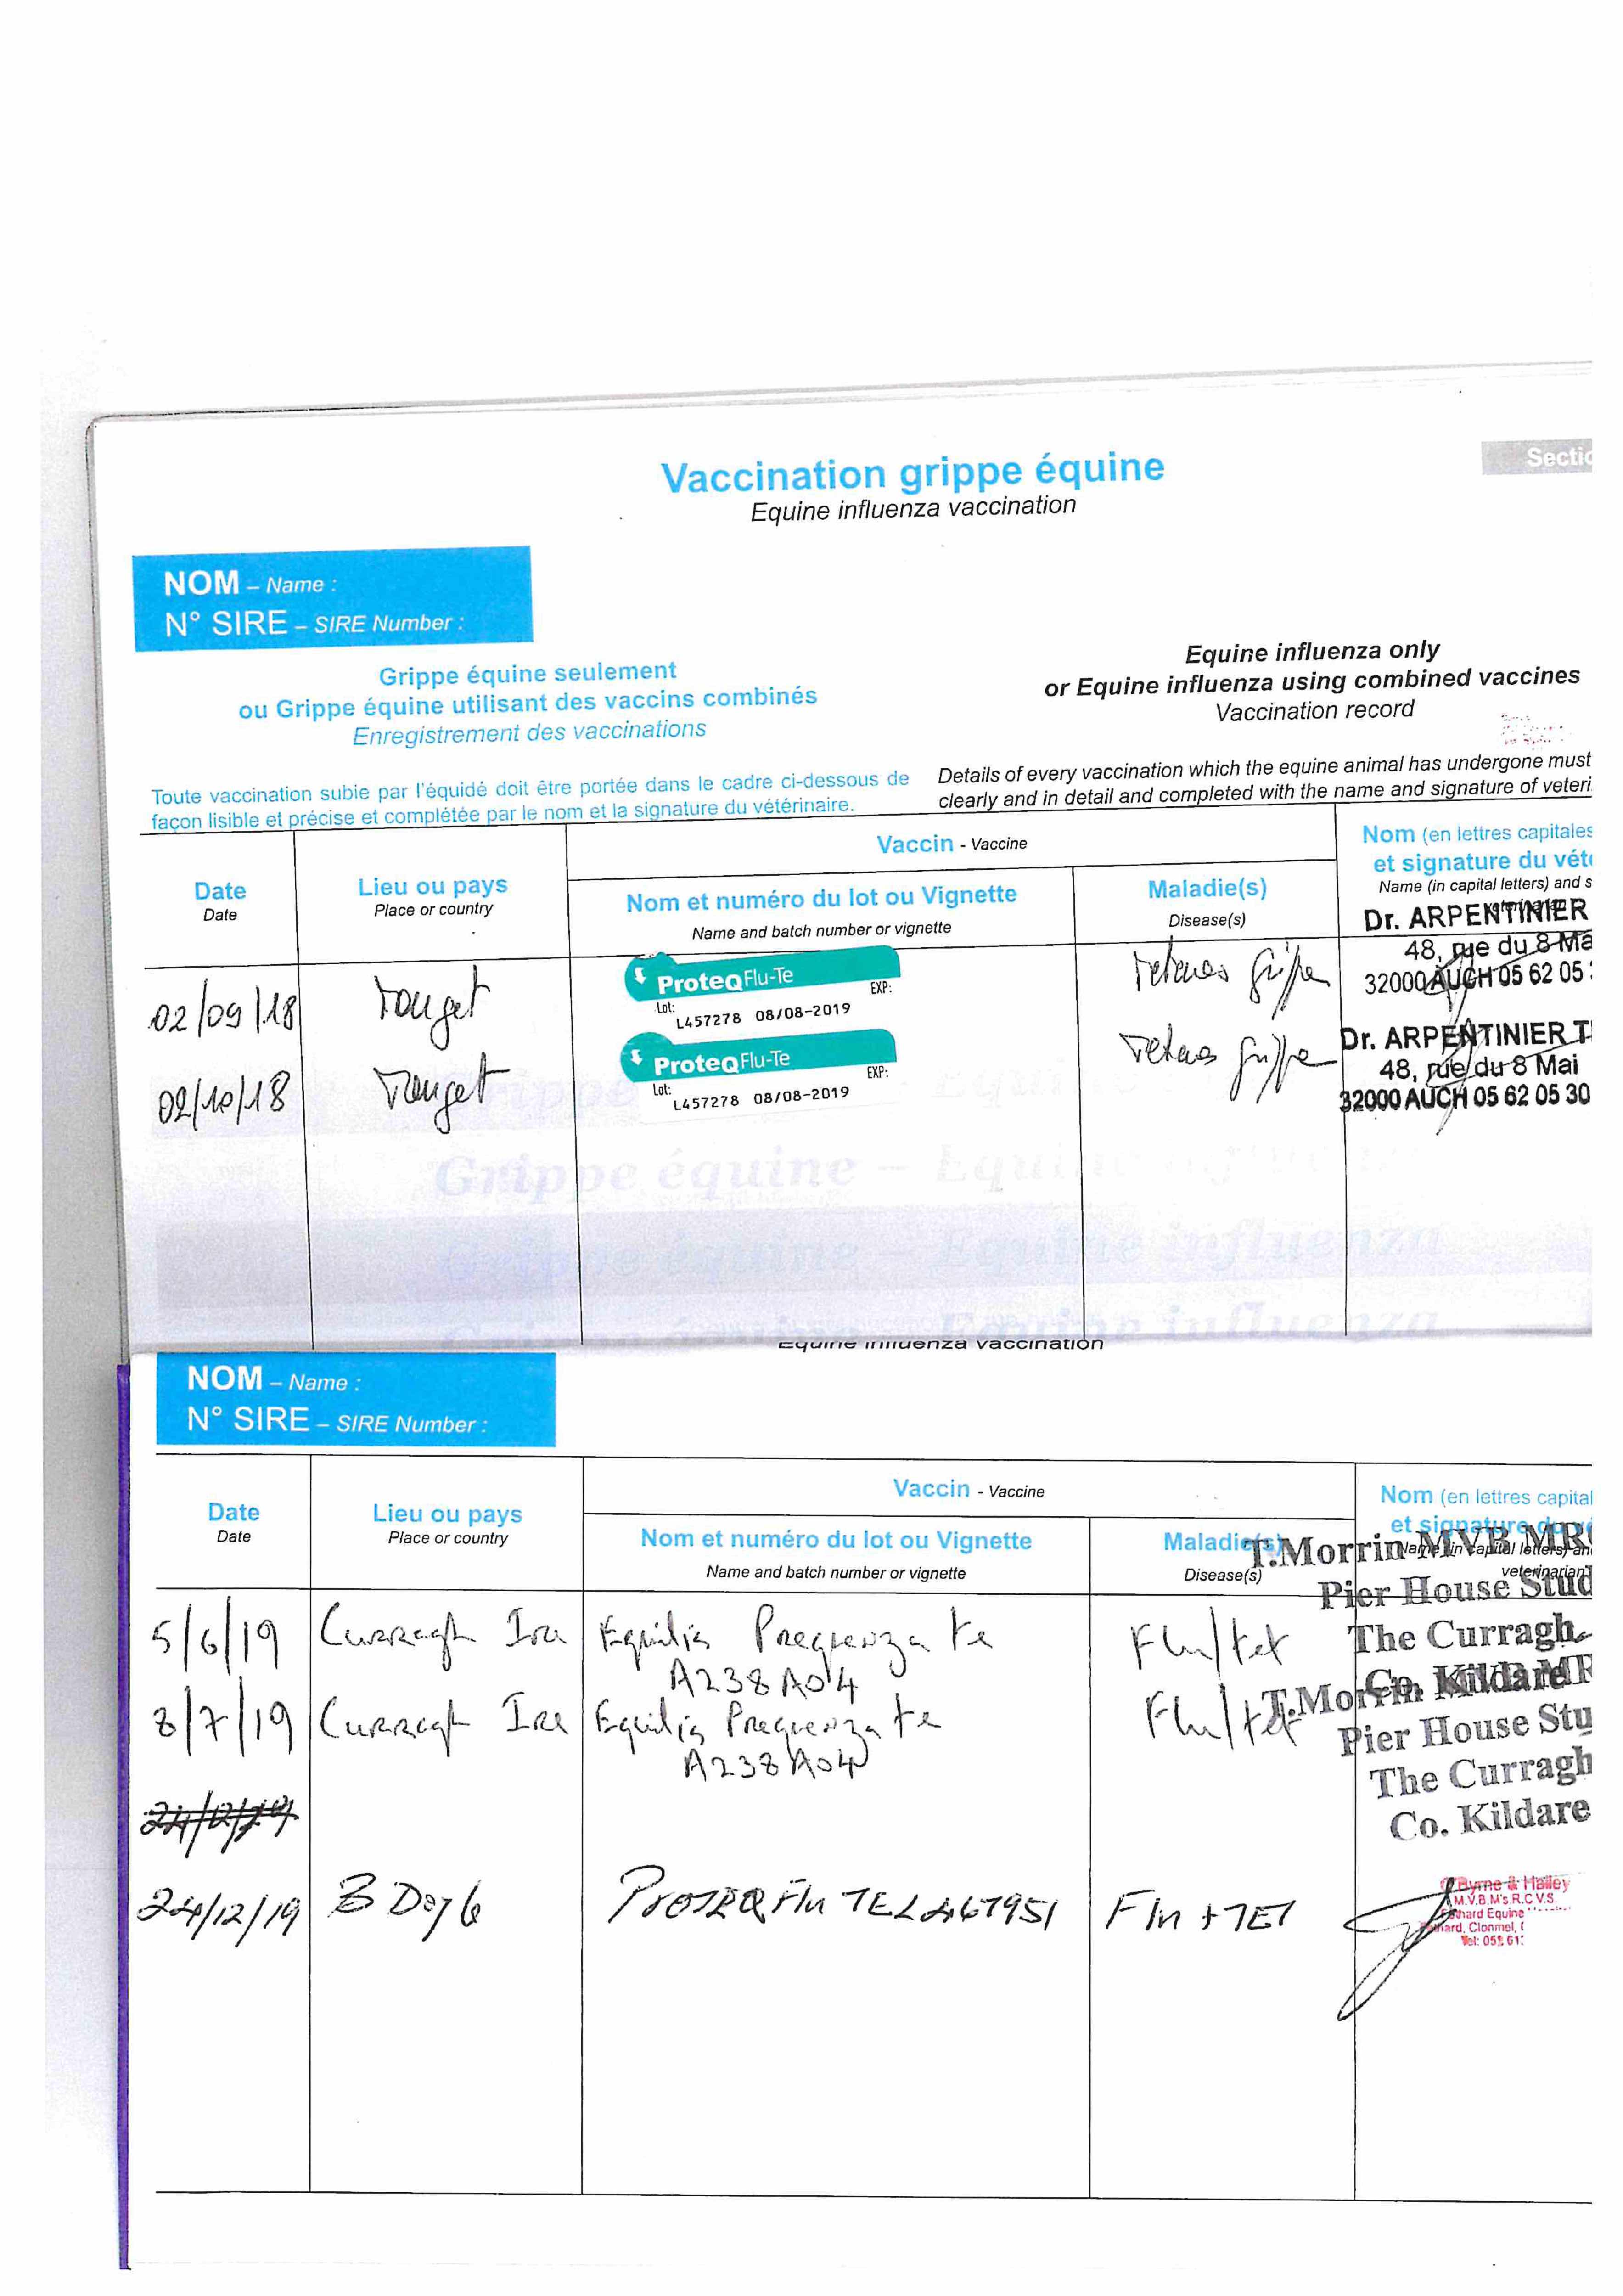 Vaccination grippe équine
Equine influenza vaccination
Sectio
NOM – Name :
N° SIRE – SIRE Number :
Grippe équine seulement
ou Grippe équine utilisant des vaccins combinés
Enregistrement des vaccinations
Equine influenza only
or Equine influenza using combined vaccines
Vaccination record
Toute vaccination subie par l'équidé doit être portée dans le cadre ci-dessous de
façon lisible et précise et complétée par le nom et la signature du vétérinaire.
Details of every vaccination which the equine animal has undergone must
clearly and in detail and completed with the name and signature of veteri
Date
Date
Lieu ou pays
Place or country
Vaccin - Vaccine
Nom et numéro du lot ou Vignette
Name and batch number or vignette
Maladie(s)
Disease(s)
Nom (en lettres capitales
et signature du vété
Name (in capital letters) and s
veterinarian
02/09/18
Touget
ProteqFlu-Te
Lot: EXP:
L457278 08/08-2019
grippe
Dr. ARPENTINIER
48, rue du 8 Ma
32000 AUCH 05 62 05
02/10/18
Touget
ProteqFlu-Te
Lot: EXP:
L457278 08/08-2019
grippe
Dr. ARPENTINIER T
48, rue du 8 Mai
32000 AUCH 05 62 05 30
Grippe équine – Equine influenza
Grippe équine – Equine influenza
Equine influenza
Equine influenza vaccination
NOM – Name :
N° SIRE – SIRE Number :
Date
Date
Lieu ou pays
Place or country
Vaccin - Vaccine
Nom et numéro du lot ou Vignette
Name and batch number or vignette
Maladie(s)
Disease(s)
Nom (en lettres capital
et signature du vé
Name (in capital letters) an
veterinarian
5/6/19
Curragh Ire
Equilis Prequenza te
A238A04
Flu/tet
T.Morrin MVB MRC
Pier House Stud
The Curragh
Co. Kildare
8/7/19
Curragh Ire
Equilis Prequenza te
A238A04
Flu/tet
T.Morrin MVB MR
Pier House Stu
The Curragh
Co. Kildare
24/12/19
24/12/19
B Doyle
PROTEQ Flu TE L467951
Flu + TET
Byrne & Halley
M.V.B.M's.R.C.V.S.
Equine
Clonmel,
Tel: 052 61